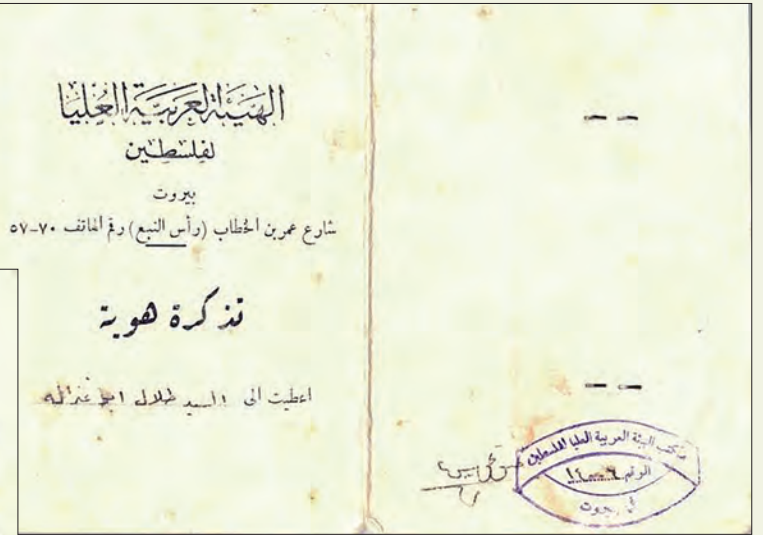 الهيئة العربية العليا
لفلسطين
بيروت
شارع عمر بن الخطاب (رأس النبع) رقم الهاتف ٧٠-٥٧
تذكرة هوية
اعطيت الى السيد طلال ابو غزاله
مكتب الهيئة العربية العليا لفلسطين
الرقم
في بيروت